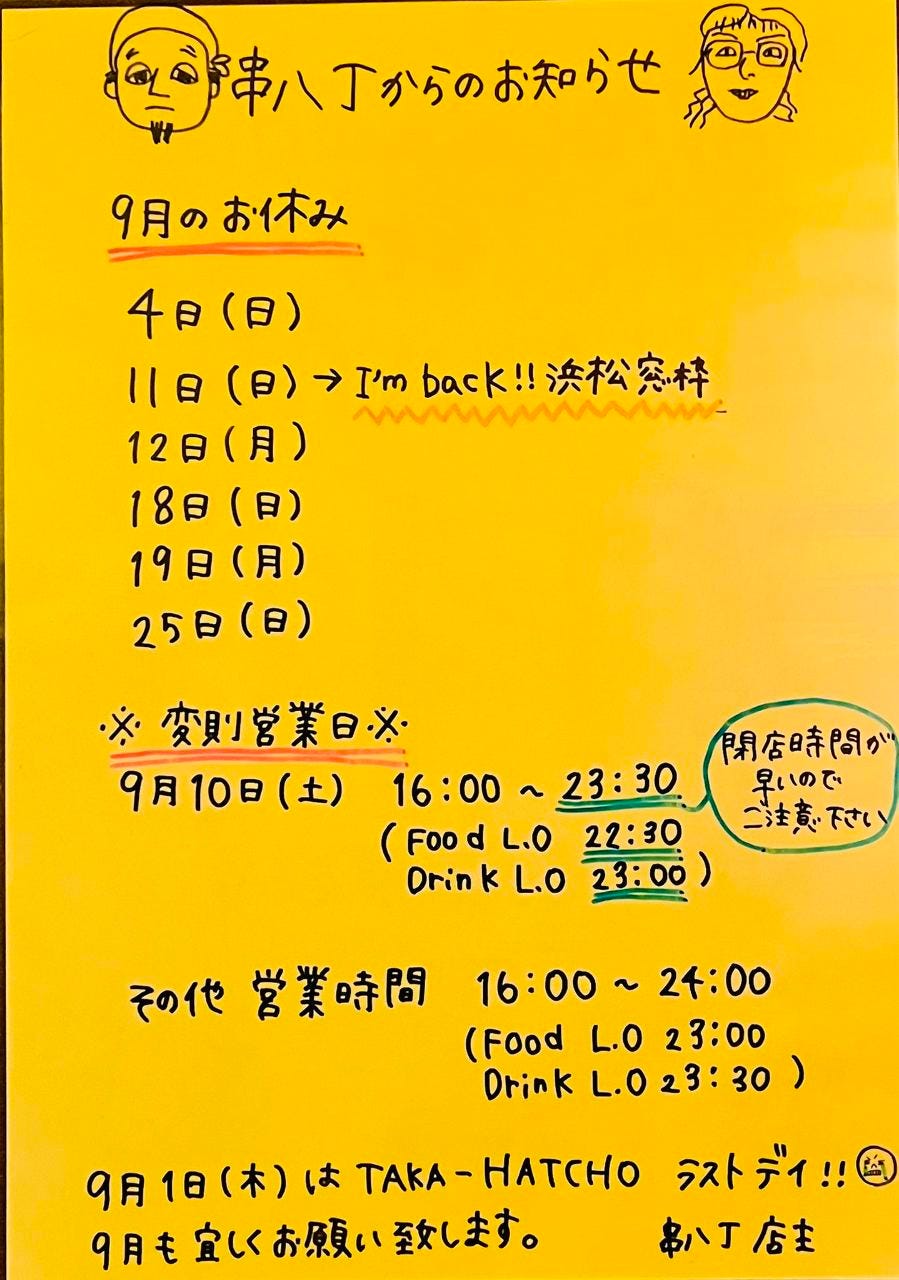 串八丁からのお知らせ
9月のお休み
4日(日)
11日(日)→I'm back!!浜松窓枠
12日(月)
18日(日)
19日(月)
25日(日)
※変則営業日※
9月10日(土) 16:00～23:30
(Food L.O 22:30
Drink L.O 23:00)
閉店時間が
早いので
ご注意下さい
その他 営業時間 16:00～24:00
(Food L.O 23:00
Drink L.O 23:30)
9月1日(木)は TAKA-HATCHO ラストデイ!!
9月も宜しくお願い致します。 串八丁 店主